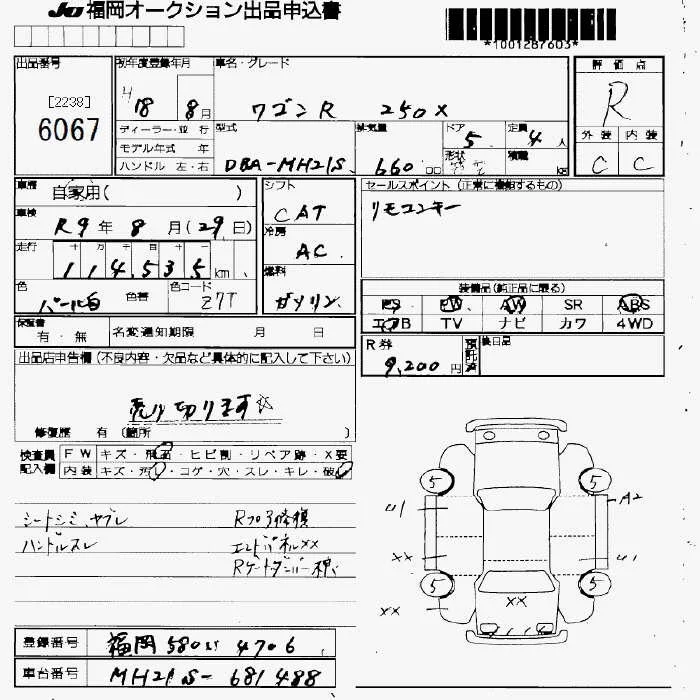 JU 福岡オークション出品申込書
*1001287603*
出品番号
[2238]
6067
初年度登録年月
H18 8月
車名・グレード
ワゴンR 250X
評価点
R
外装 内装
C C
ディーラー・並行
モデル年式 年
ハンドル 左・右
型式
DBA-MH21S
排気量
660 CC
ドア
5
形状
定員
4人
積載
kg
車歴
自家用( )
車検
R9年 8月(29日)
走行
十 万 千 百 十
114,535 km
色
パール白
色替
色コード
Z7T
シフト
CAT
冷房
AC
燃料
ガソリン
セールスポイント (正常に機能するもの)
リモコンキー
装備品(純正品に限る)
PS PW AW SR ABS
エアB TV ナビ カワ 4WD
保証書
有・無
名変通知期限 月 日
R券
9,200円
預託済
後日品
出品店申告欄(不良内容・欠品など具体的に記入して下さい)
売り切ります
修復歴 有 (箇所 )
検査員記入欄
FW キズ・飛石・ヒビ割・リペア跡・X要
内装 キズ・汚れ・コゲ・穴・スレ・キレ・破れ
シートシミ、ヤブレ
ハンドルスレ
エンドパネルXX
5 5
U1 A2
XX U1
5 5
XX
XX
登録番号
福岡580 4706
車台番号
MH21S-681488